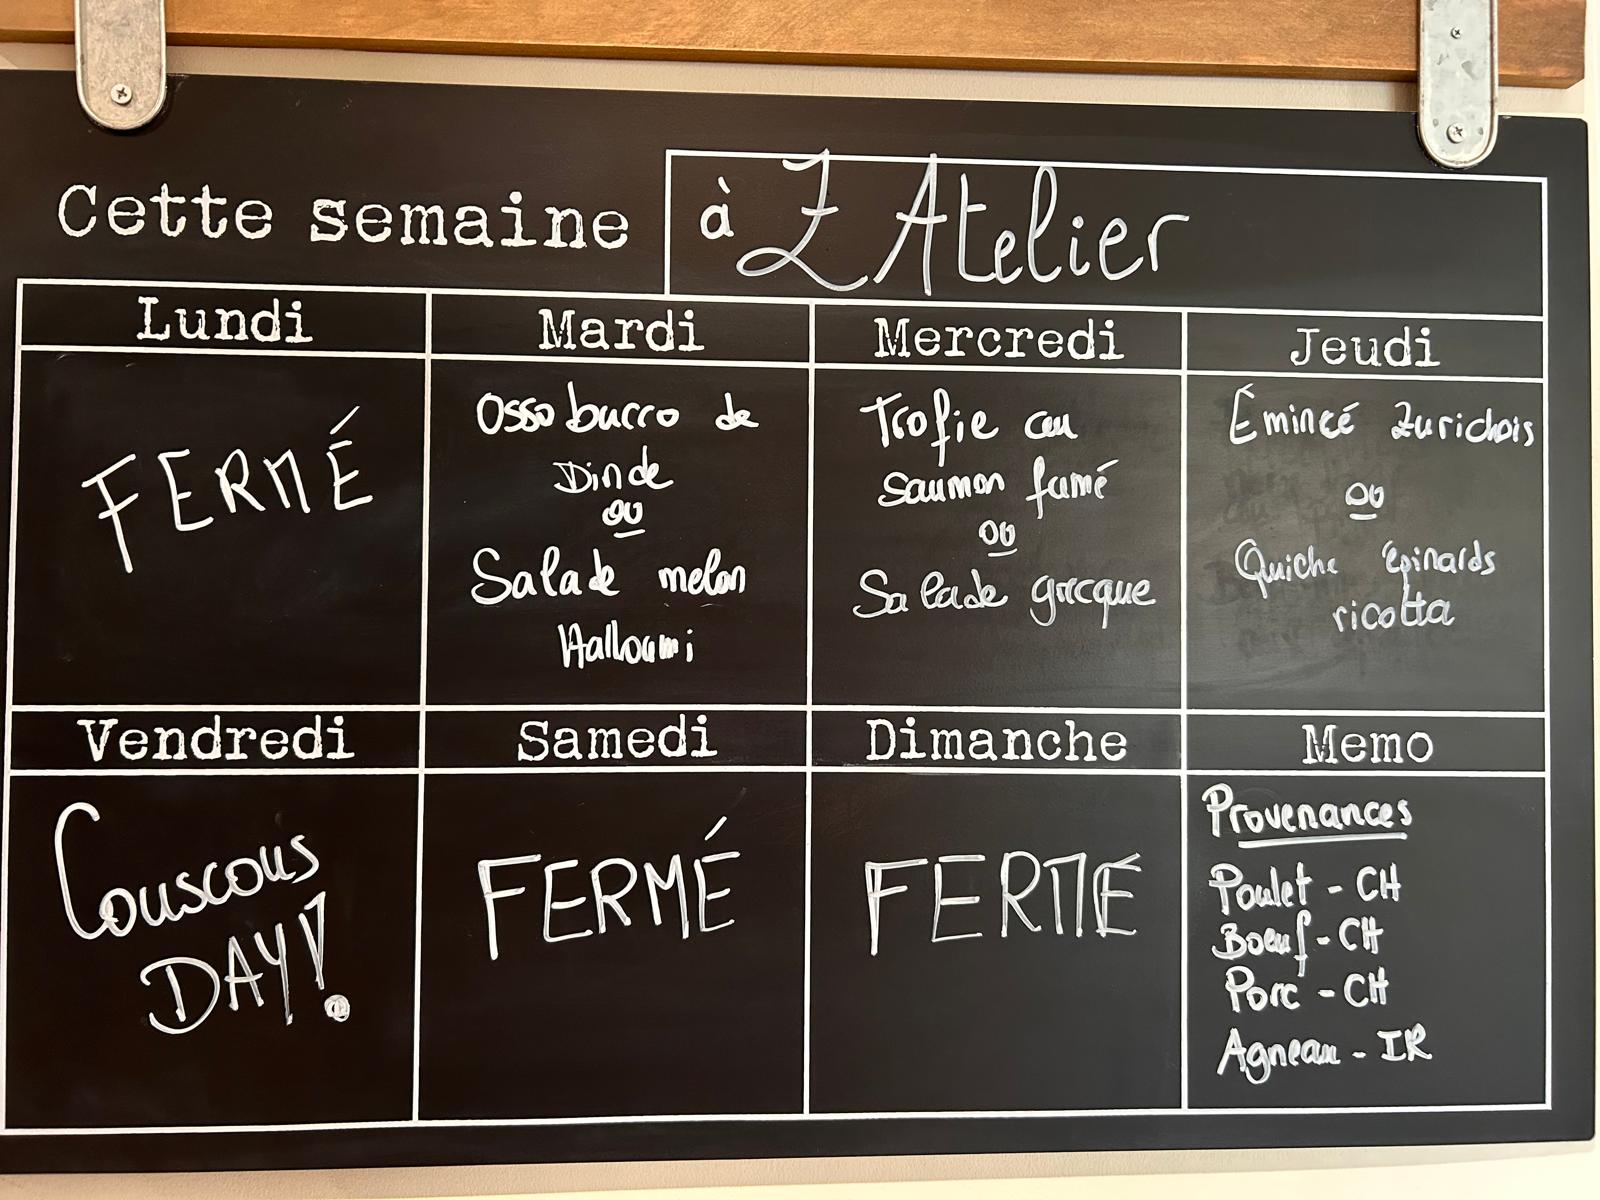 Cette semaine
à L'Atelier
Lundi
FERMÉ
Mardi
Osso bucco de
Dinde
ou
Salade melon
Halloumi
Mercredi
Trofie au
saumon fumé
ou
Salade grecque
Jeudi
Émincé zurichois
ou
Quiche épinards
ricotta
Vendredi
Couscous
DAY!
Samedi
FERMÉ
Dimanche
FERMÉ
Memo
Provenances
Poulet - CH
Boeuf - CH
Porc - CH
Agneau - IR